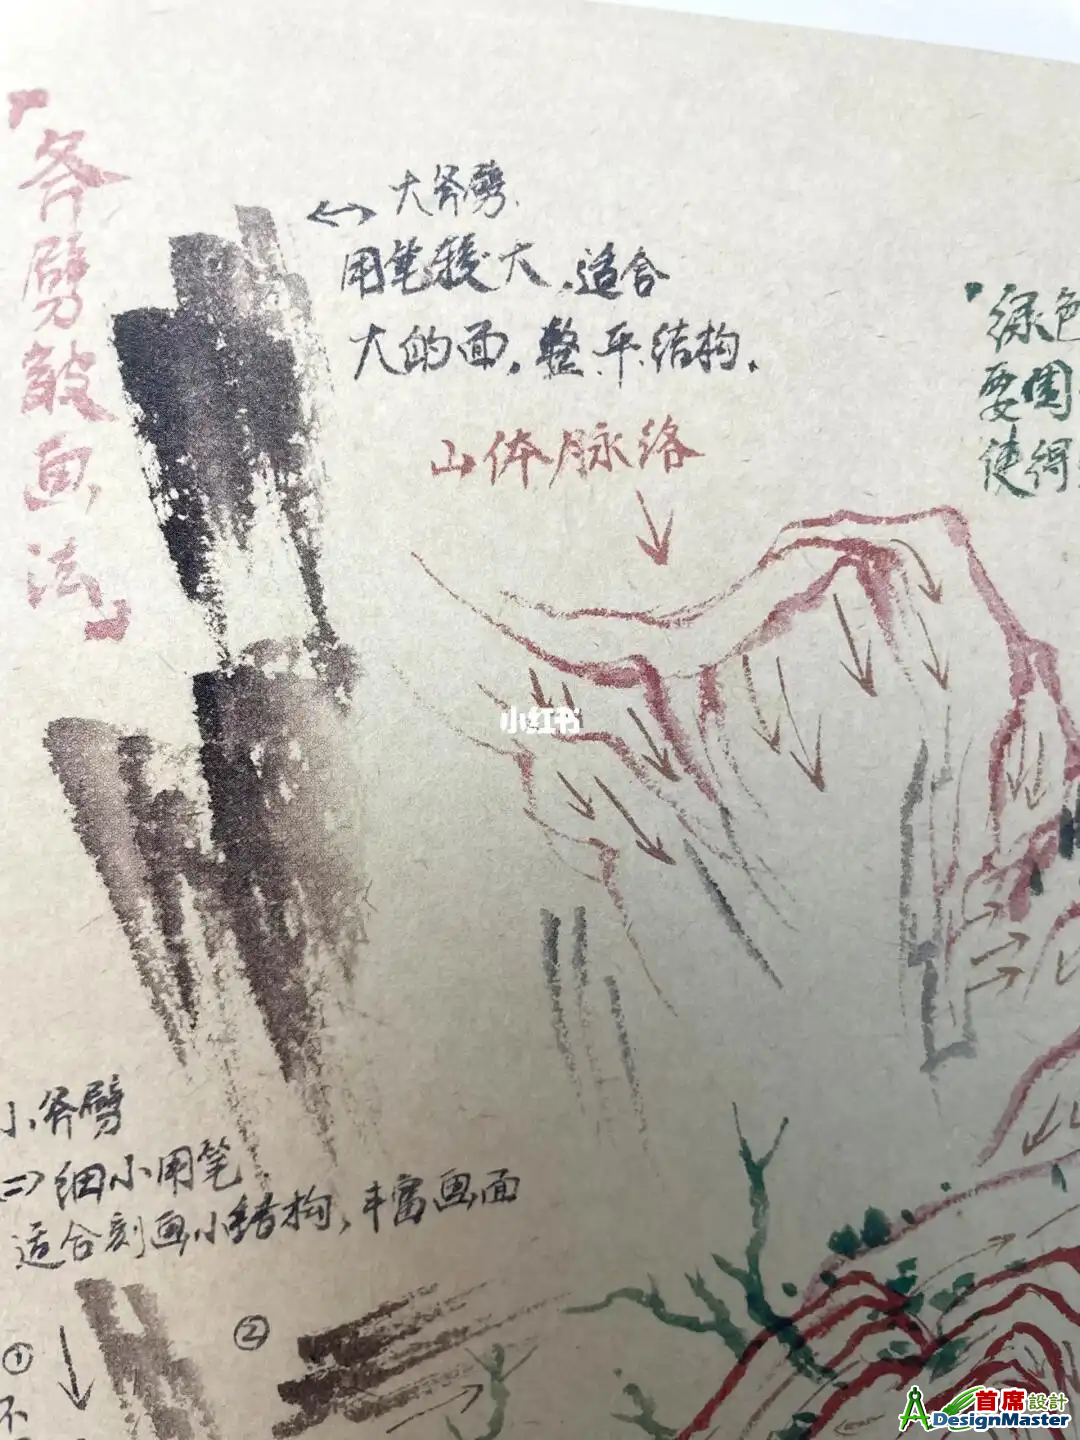 「斧劈皴画法」
大斧劈.
用笔较大.适合
大的面.整.平.结构.
山体脉络
绿色
要围
使得
小斧劈
=>细小用笔
适合刻画小结构,丰富画面
①
②
不
小红书
首席設計
ADesignMaster